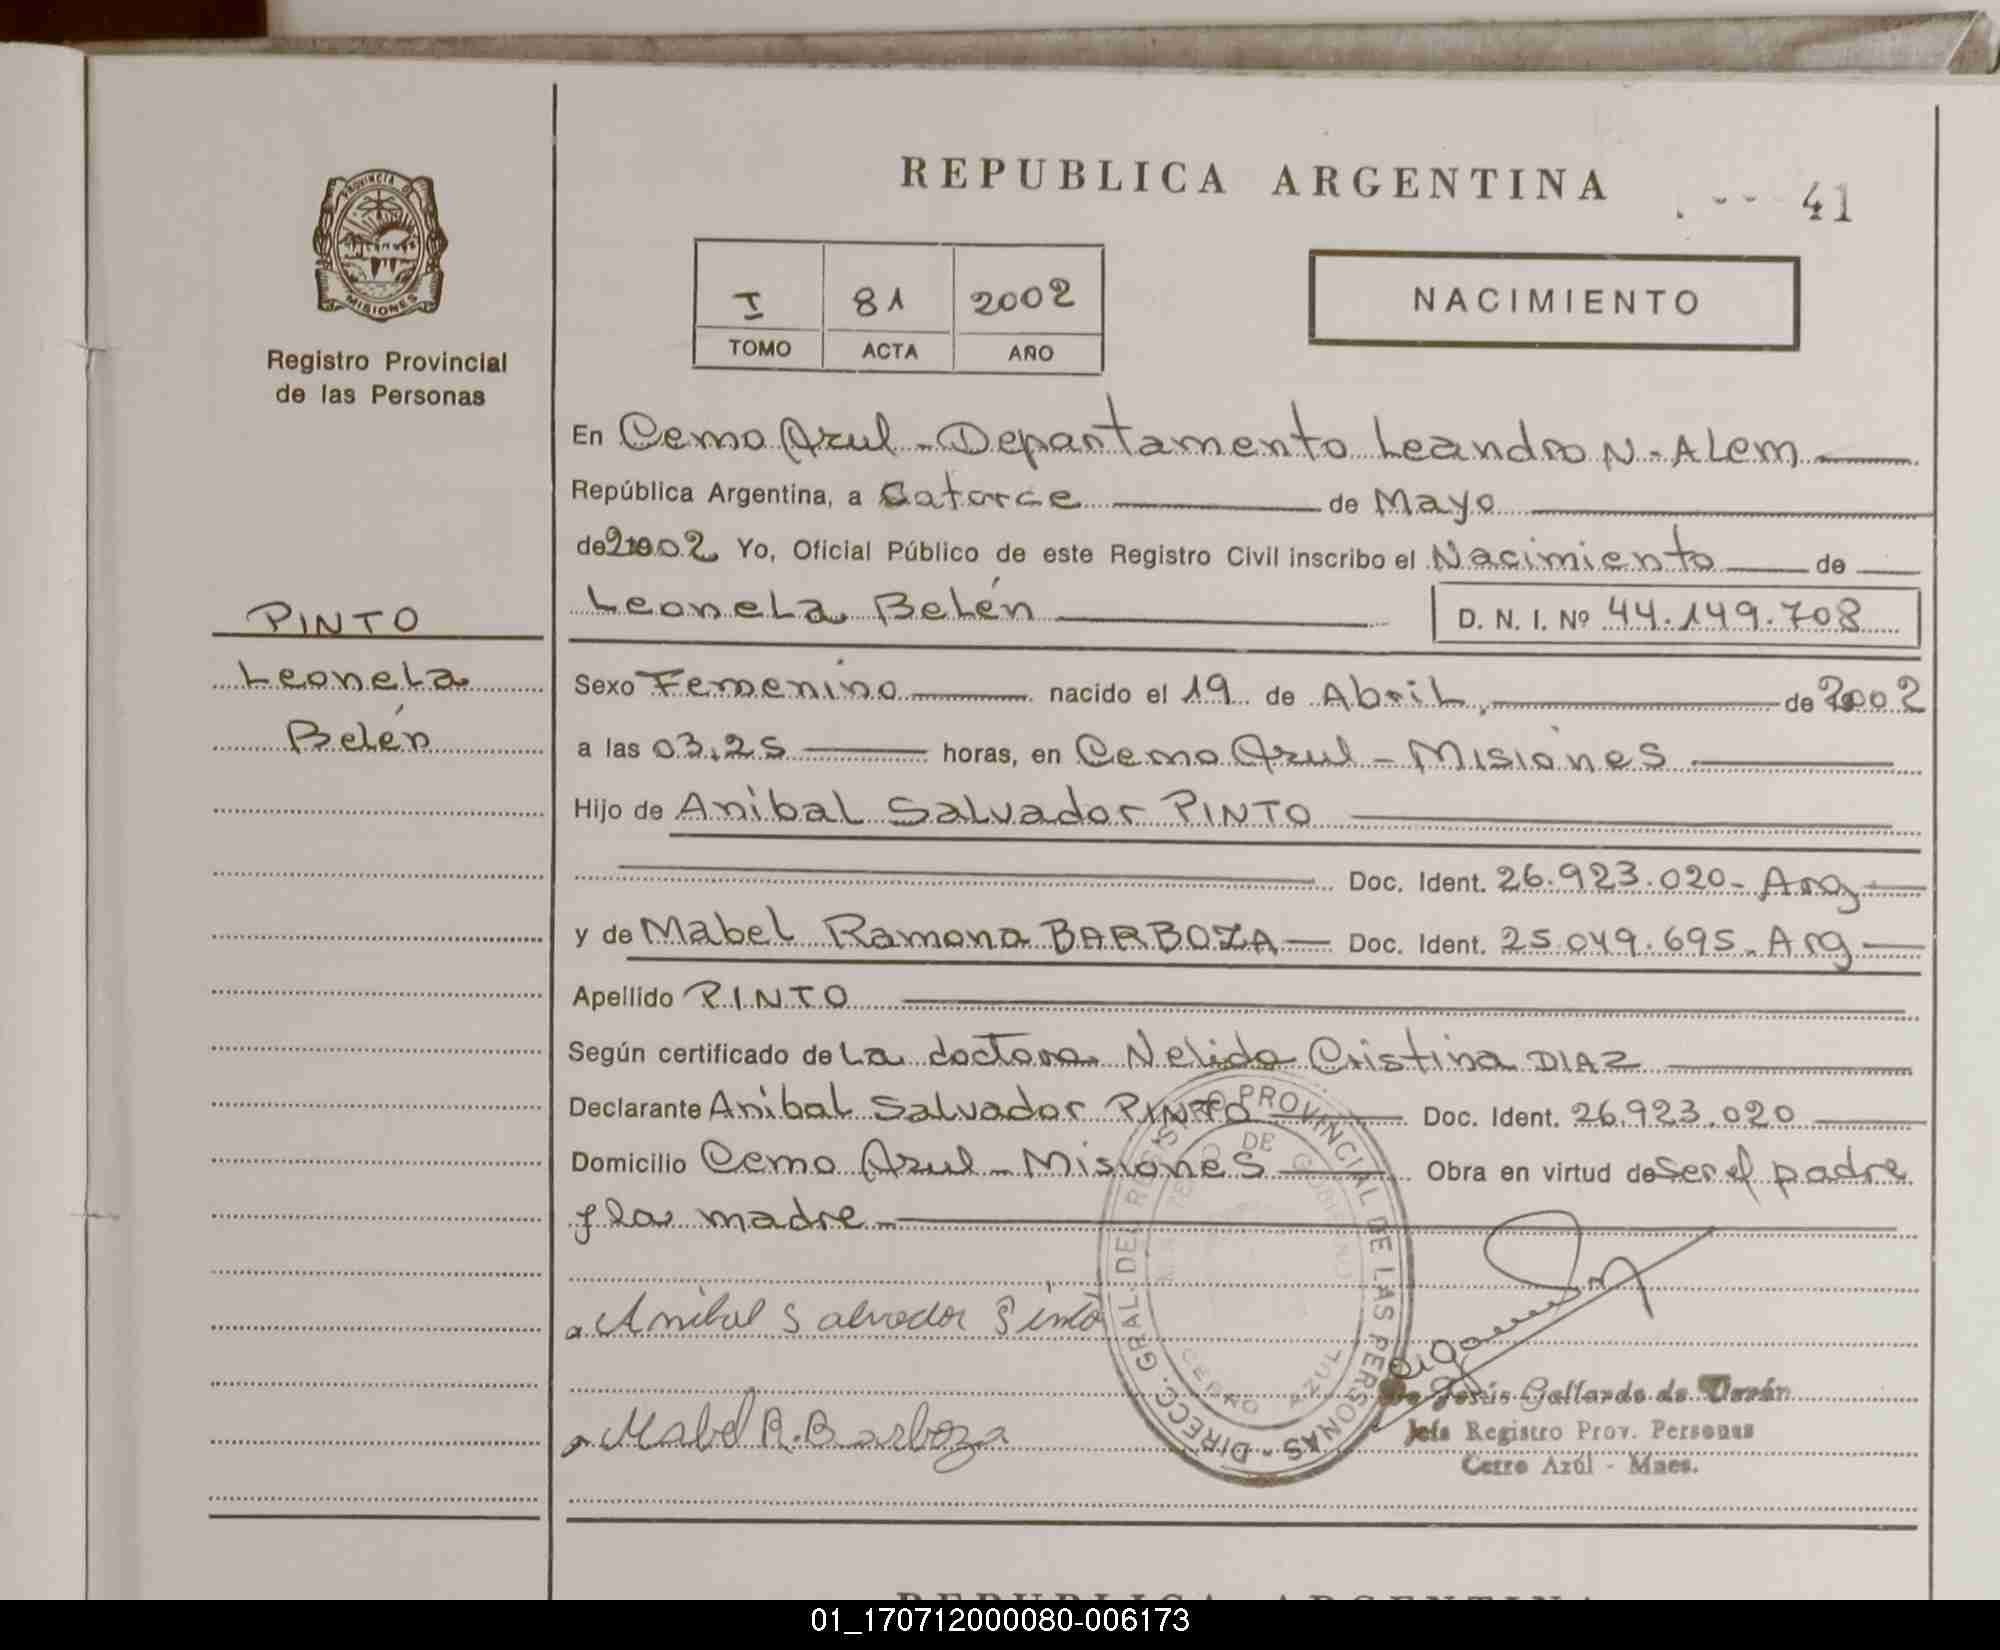 REPUBLICA ARGENTINA
41
PROVINCIA DE
MISIONES
Registro Provincial
de las Personas
I 81 2002
TOMO ACTA AÑO
NACIMIENTO
En Cerro Azul - Departamento Leandro N. Alem
República Argentina, a Catorce de Mayo
de 2002 Yo, Oficial Público de este Registro Civil inscribo el Nacimiento de
Leonela Belén D. N. I. Nº 44.149.708
PINTO
Leonela
Belén
Sexo Femenino nacido el 19 de Abril, de 2002
a las 03.25 horas, en Cerro Azul - Misiones
Hijo de Anibal Salvador PINTO
Doc. Ident. 26.923.020- Arg
y de Mabel Ramona BARBOZA Doc. Ident. 25.049.695- Arg
Apellido PINTO
Según certificado de La doctora Nelida Cristina DIAZ
Declarante Anibal Salvador PINTO Doc. Ident. 26.923.020
Domicilio Cerro Azul - Misiones Obra en virtud de ser el padre
y la madre
Anibal Salvador Pinto
Mabel R. Barboza
DIRECC. GRAL. DEL REGISTRO PROVINCIAL DE LAS PERSONAS
DE GOBIERNO
CERRO AZUL
Jesús Gallardo de
Jefa Registro Prov. Personas
Cerro Azúl - Mnes.
REPUBLICA ARGENTINA
01_170712000080-006173